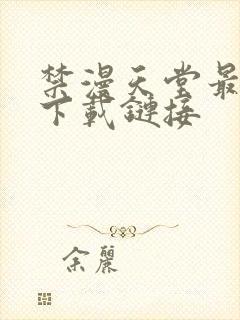 禁漫天堂最
下載鏈接
余麗